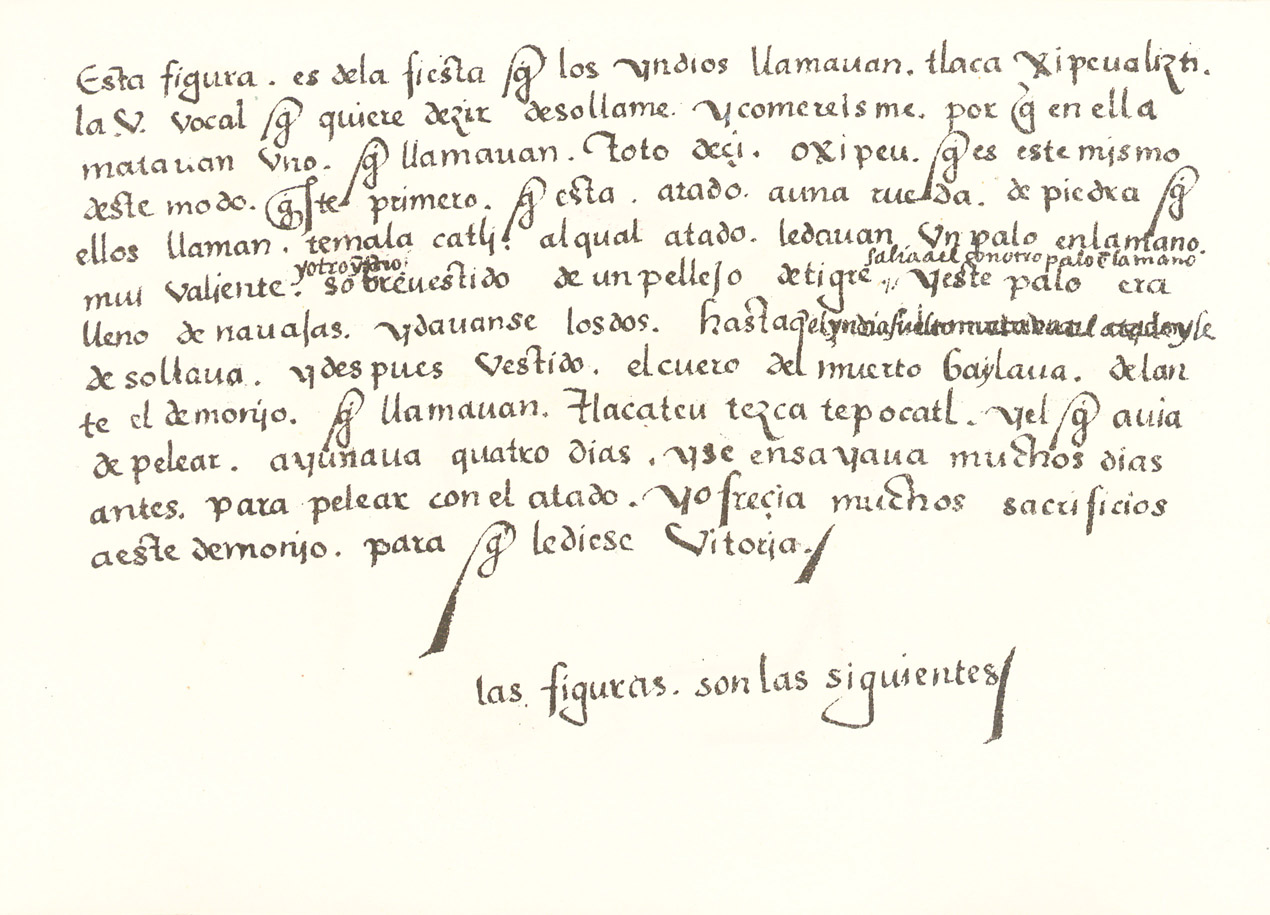 Esta figura . es dela fiesta q̃ los yndios llamauan . tlaca xipeualizti .
la V. vocal q̃ quiere dezir desollame. ycomereisme. por q̃ en ella
matauan vno. q̃ llamauan . Toto deçi . oxipeu. q̃ es este mismo
deste modo. q̃ste primero. q̃ esta . atado. auna rueda. de piedra q̃
ellos llaman . temala catlj. alqual atado. ledauan vn palo enlamano.
yotro yndio salia ael con otro palo ẽ lamano
mui valiente. sobreuestido de un pellejo detigre yeste palo era
lleno de nauajas. ydauanse losdos. hasta q̃ el yndio suelto mataua al atado yle
desollaua. ydespues vestido. elcuero del muerto baylaua. delan
te el demonjo. q̃ llamauan. Tlacateu tezca tepocatl. yel q̃ auia
de pelear. ayunaua quatro dias . yse ensayaua muchos dias
antes. para pelear con el atado. yofreçia muchos sacrificios
aeste demonjo. para q̃ lediese Vitorja.
las figuras. son las siguientes